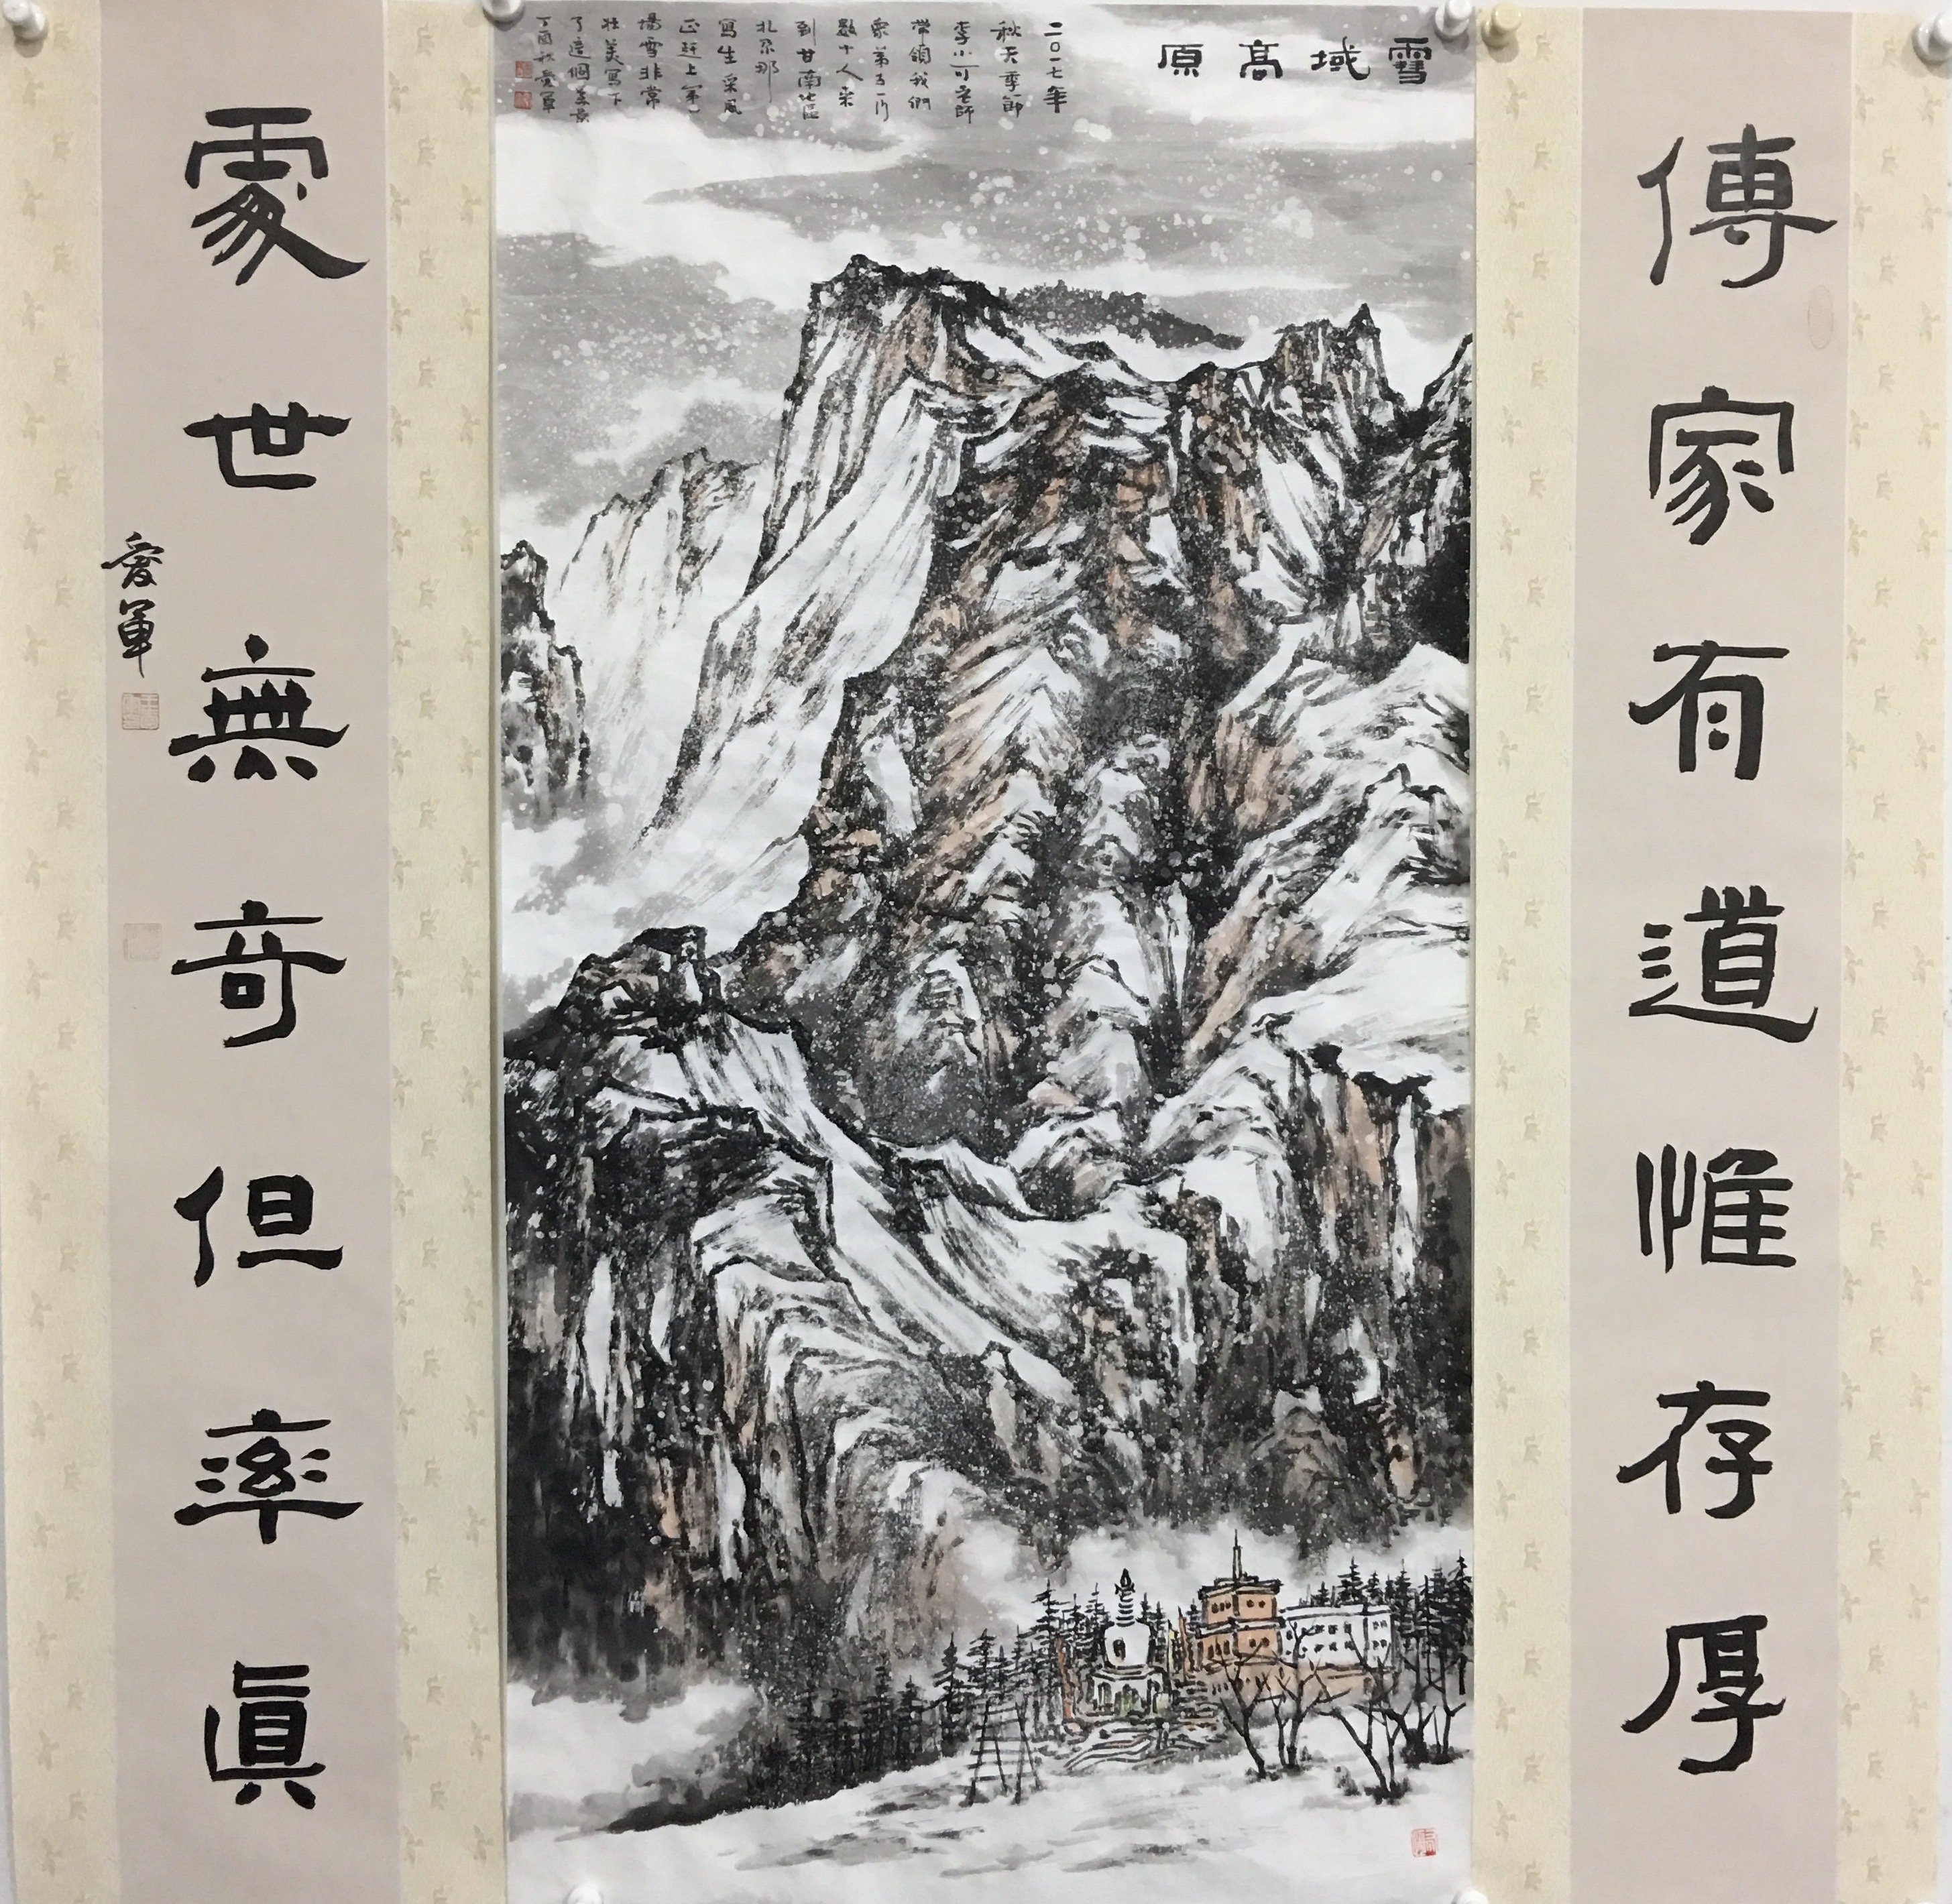 傳家有道惟存厚
雪域髙原
二〇一七年
秋天季節
李小可老師
帶領我們
眾弟子一行
數十人来
到甘南地區
扎尕那
寫生采風
正趕上第一
場雪非常
壯美寫下
了這個美景
丁酉秋愛軍
處世無奇但率眞
愛軍